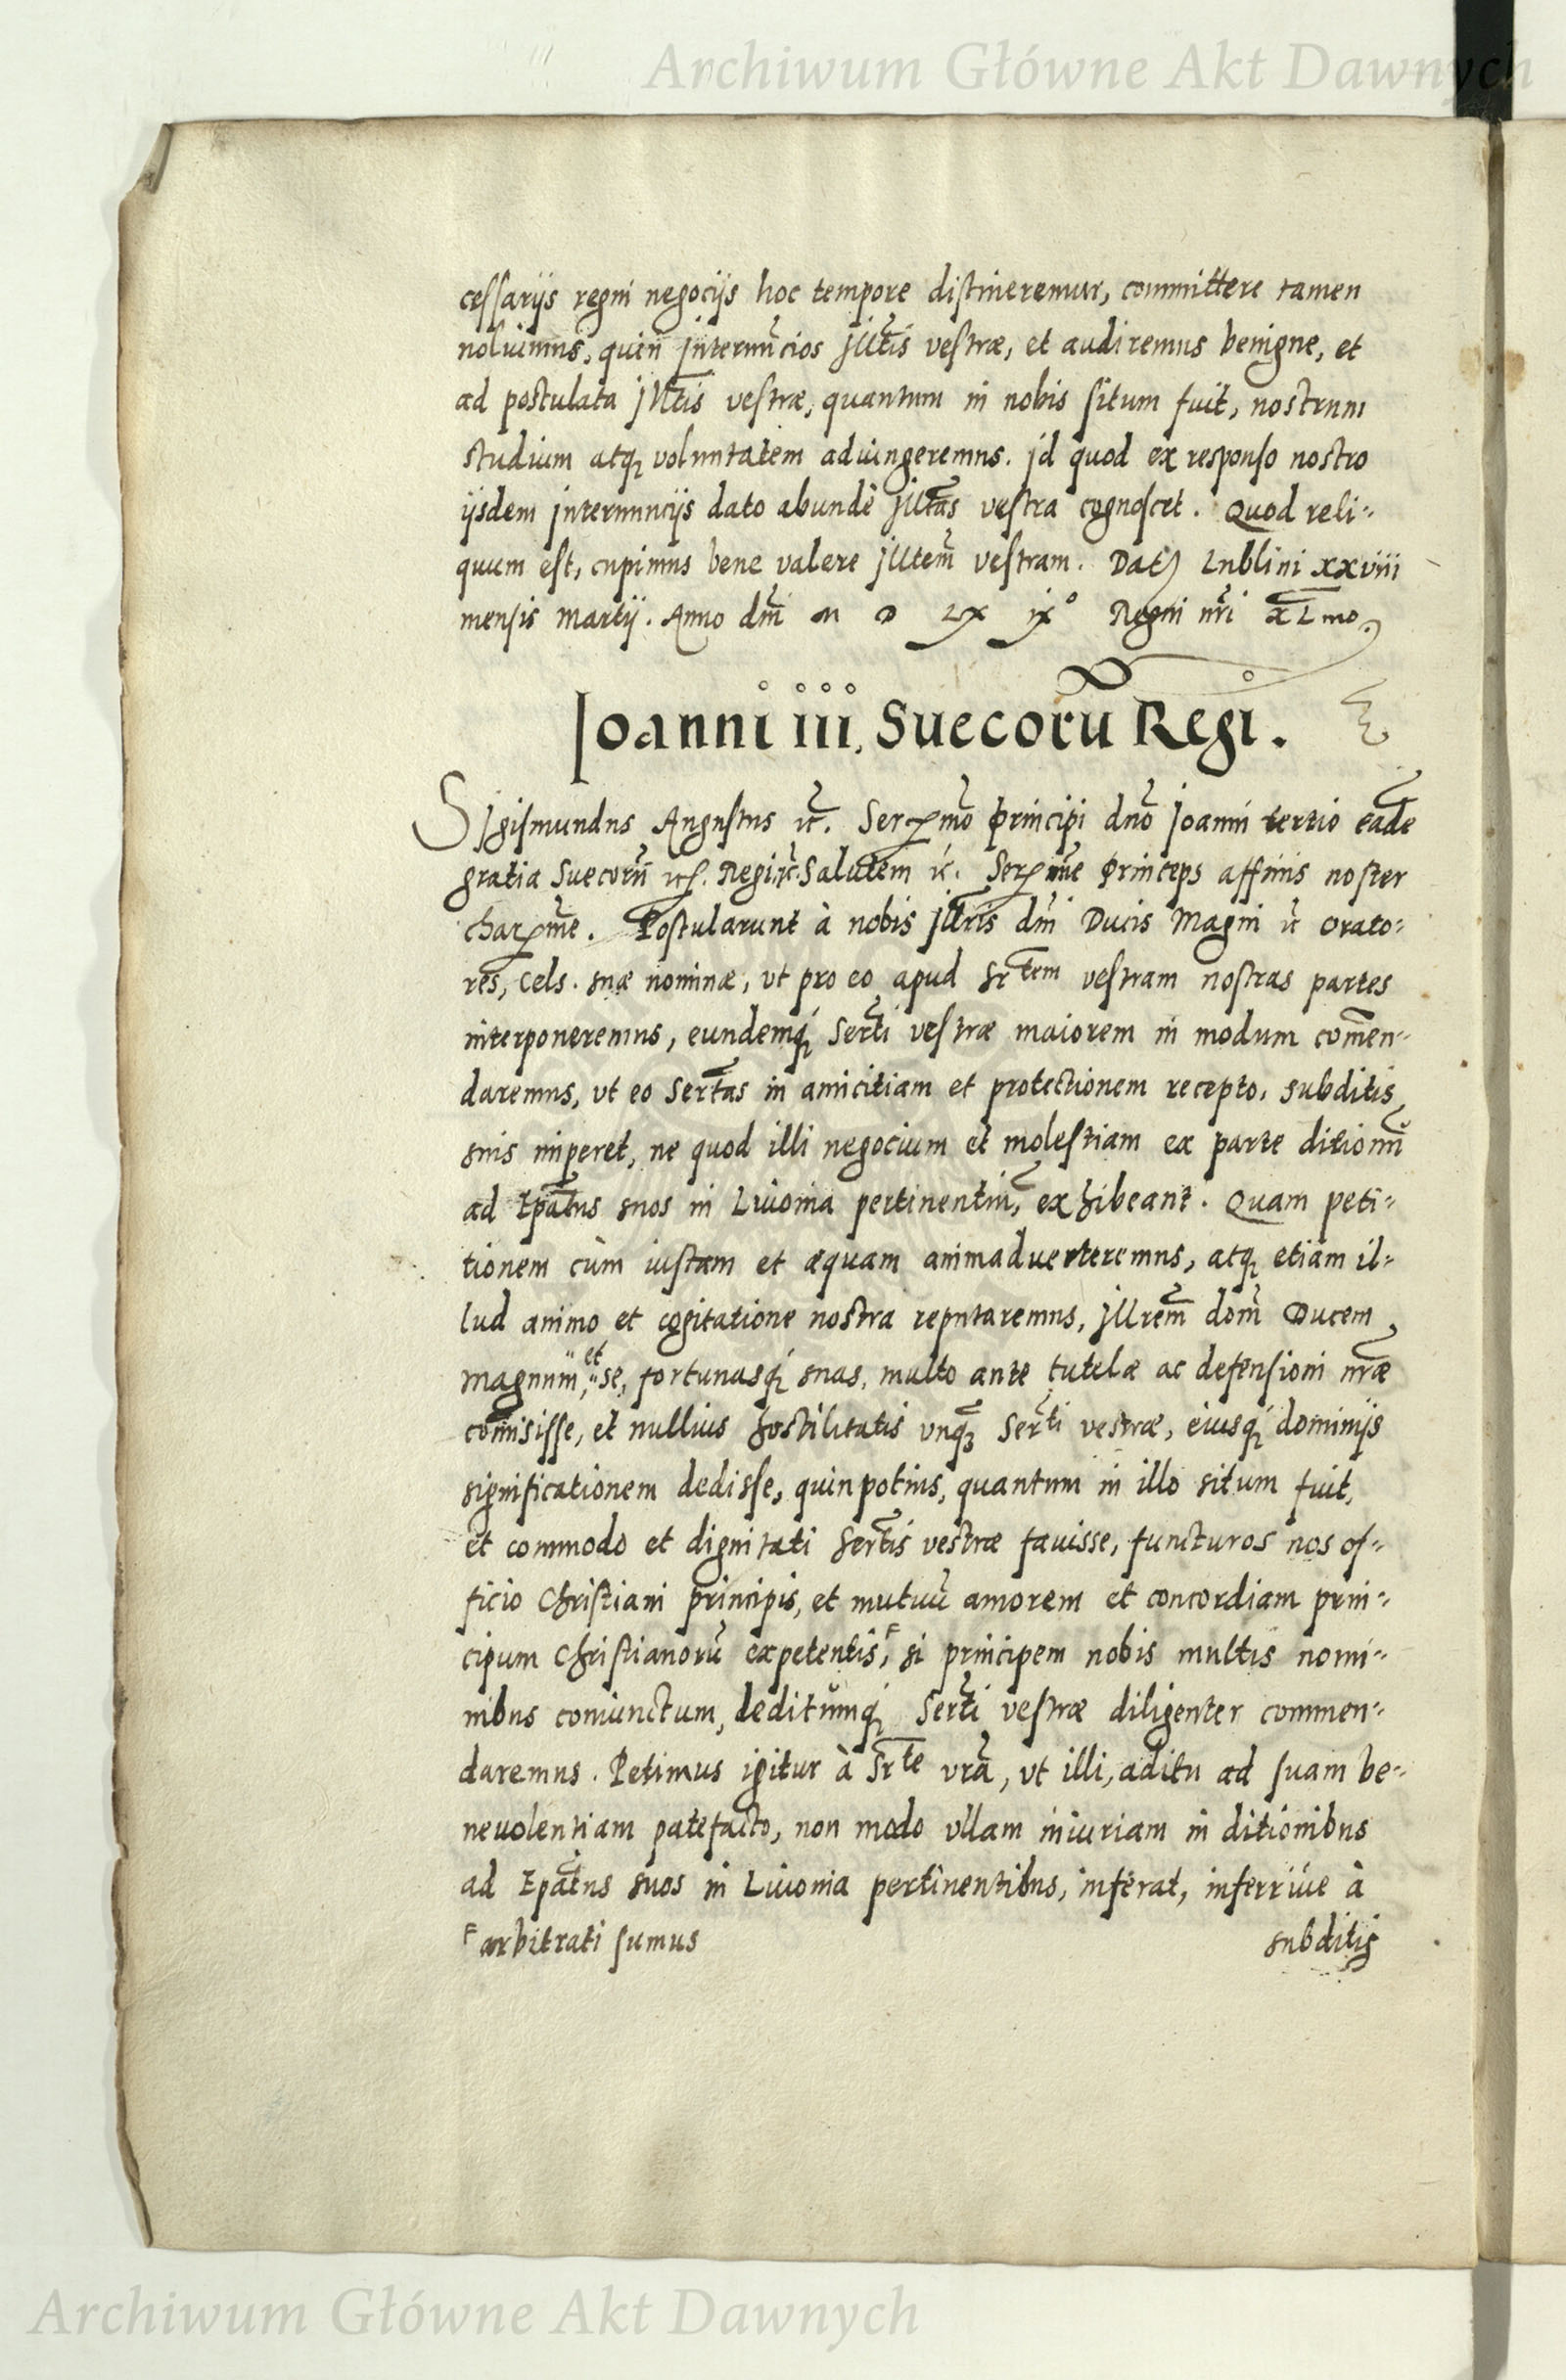 Archiwum Główne Akt Dawnych
cessarijs regni negocijs hoc tempore distineremur, committere tamen
noluimus, quin internũcios Jllt̃is vestræ, et audiremus benigne, et
ad postulata Jllt̃is vestræ, quantum in nobis situm fuit, nostrum
studium atq; voluntatem adiungeremus. Jd quod ex responso nostro
ijsdem internuncijs dato abundè Jllt̃as vestra cognoscet. Quod reli-
quum est, cupimus bene valere Jlltem̃ vestram. Dat; Lublini xxviii
mensis Martij. Anno dm̃ M D LX ix° Regni nr̃i XLmo
Joanni iii. Suecorũ Regi.
Sigismundus Augustus etc̃. Serꝯmõ Principi dnõ Joanni tertio eadẽ
gratia Suecorũ etc. Regi etc. Salutem etc. Serꝯmẽ Princeps affinis noster
charꝯmẽ. Postularunt à nobis Jllr̃is dm̃i Ducis Magni etc̃ orato-
res, Cels. suæ nominæ, vt pro eo apud Srtem vestram nostras partes
interponeremus, eundemq; Sert̃i vestræ maiorem in modum com̃en-
daremus, vt eo Sert̃as in amicitiam et protectionem recepto, subditis
suis imperet, ne quod illi negocium et molestiam ex parte ditionũ
ad Epãtus suos in Liuonia pertinentiũ, exhibeant. Quam peti-
tionem cùm iustam et æquam animaduerteremus, atq; etiam il-
lud animo et cogitatione nostra reputaremus, Jllrem̃ dom̃ Ducem
Magnum, et se, fortunasq; suas, multo ante tutelæ ac defensioni nr̃æ
com̃isisse, et nullius hostilitatis vnq̃; Sert̃i vestræ, eiusq; dominijs
significationem dedisse, quinpotius, quantum in illo situm fuit,
et commodo et dignitati Sert̃is vestræ fauisse, functuros nos of-
ficio Christiani principis, et mutuũ amorem et concordiam prin-
cipum Christianorũ expetentis,ꜰ si principem nobis multis nomi-
nibus coniunctum, deditumq; Sert̃i vestræ diligenter commen-
daremus. Petimus igitur à Srte vrã, vt illi, aditu ad suam be-
neuolentiam patefacto, non modo vllam iniuriam in ditionibus
ad Epãtus suos in Liuonia pertinentibus, inferat, inferriue à
ꜰ arbitrati sumus subditis
Archiwum Główne Akt Dawnych